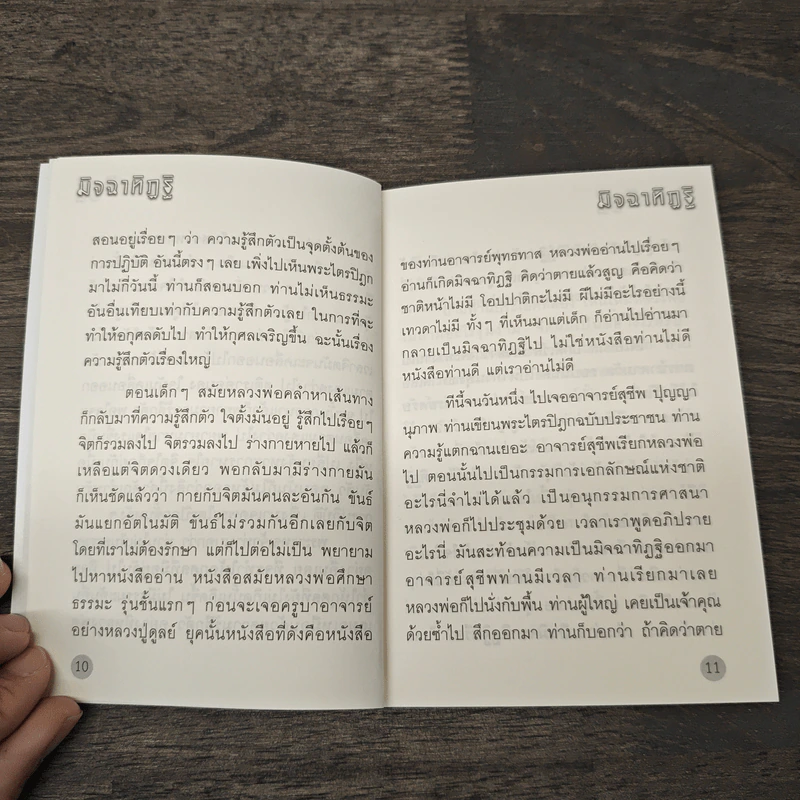 มิจฉาทิฏฐิ
สอนอยู่เรื่อยๆ ว่า ความรู้สึกตัวเป็นจุดตั้งต้นของ
การปฏิบัติ อันนี้ตรงๆ เลย เพิ่งไปเห็นพระไตรปิฎก
มาไม่กี่วันนี้ ท่านก็สอนบอก ท่านไม่เห็นธรรมะ
อันอื่นเทียบเท่ากับความรู้สึกตัวเลย ในการที่จะ
ทำให้อกุศลดับไป ทำให้กุศลเจริญขึ้น ฉะนั้นเรื่อง
ความรู้สึกตัวเรื่องใหญ่
ตอนเด็กๆ สมัยหลวงพ่อคลำหาเส้นทาง
ก็กลับมาที่ความรู้สึกตัว ใจตั้งมั่นอยู่ รู้สึกไปเรื่อยๆ
จิตก็รวมลงไป จิตรวมลงไป ร่างกายหายไป แล้วก็
เหลือแต่จิตดวงเดียว พอกลับมามีร่างกายมัน
ก็เห็นชัดแล้วว่า กายกับจิตมันคนละอันกัน ขันธ์
มันแยกอัตโนมัติ ขันธ์ไม่รวมกันอีกเลยกับจิต
โดยที่เราไม่ต้องรักษา แต่ก็ไปต่อไม่เป็น พยายาม
ไปหาหนังสืออ่าน หนังสือสมัยหลวงพ่อศึกษา
ธรรมะ รุ่นชั้นแรกๆ ก่อนจะเจอครูบาอาจารย์
อย่างหลวงปู่ดูลย์ ยุคนั้นหนังสือที่ดังคือหนังสือ
10
มิจฉาทิฏฐิ
ของท่านอาจารย์พุทธทาส หลวงพ่ออ่านไปเรื่อยๆ
อ่านก็เกิดมิจฉาทิฏฐิ คิดว่าตายแล้วสูญ คือคิดว่า
ชาติหน้าไม่มี โอปปาติกะไม่มี ผีไม่มีอะไรอย่างนี้
เทวดาไม่มี ทั้งๆ ที่เห็นมาแต่เด็ก ก็อ่านไปอ่านมา
กลายเป็นมิจฉาทิฏฐิไป ไม่ใช่หนังสือท่านไม่ดี
หนังสือท่านดี แต่เราอ่านไม่ดี
ทีนี้จนวันหนึ่ง ไปเจออาจารย์สุชีพ ปุญญา
นุภาพ ท่านเขียนพระไตรปิฎกฉบับประชาชน ท่าน
ความรู้แตกฉานเยอะ อาจารย์สุชีพเรียกหลวงพ่อ
ไป ตอนนั้นไปเป็นกรรมการเอกลักษณ์แห่งชาติ
อะไรนี่จำไม่ได้แล้ว เป็นอนุกรรมการศาสนา
หลวงพ่อก็ไปประชุมด้วย เวลาเราพูดอภิปราย
อะไรนี่ มันสะท้อนความเป็นมิจฉาทิฏฐิออกมา
อาจารย์สุชีพท่านมีเวลา ท่านเรียกมาเลย
หลวงพ่อก็ไปนั่งกับพื้น ท่านผู้ใหญ่ เคยเป็นเจ้าคุณ
ด้วยซ้ำไป สึกออกมา ท่านก็บอกว่า ถ้าคิดว่าตาย
11